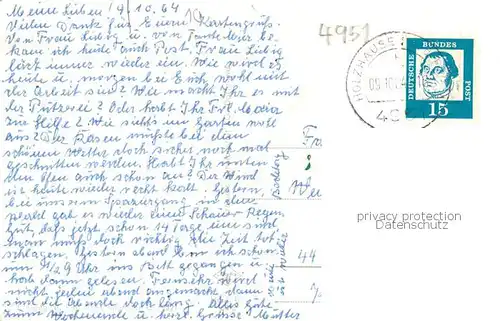 Meine Lieben! 9.10.64
Vielen Dank für Euern Kartengruß.
Von Frau Liebig u. von Tante be-
kam ich heute auch Post. Frau Liebig
immer wieder ein. Wie wird es
heute u. morgen bei Euch wohl mit
der Arbeit sein? Wie macht Ihr es mit
der Putzerei? Oder habt Ihr Frl.
zur Hilfe? Wie sieht's im Garten wohl
aus? Der Rasen müßte bei dem
schönen Wetter doch sicher noch mal
geschnitten werden. Habt Ihr unten
den Ofen auch schon an? Der Wind
ist heute wieder recht kalt. Gestern,
bei unserm Spaziergang in den
gab es wieder einen Schauer Regen.
Gut, daß jetzt schon 14 Tage um sind,
man muß doch richtig die Zeit tot-
schlagen. Gestern abend bin ich schon
um 1/2 9 Uhr ins Bett gegangen u.
habe dann gelesen. Fernsehn wird
nicht jeden abend angemacht dann
sind die Abende doch lang. Alles Gute
zum Wochenende u. herzl. Grüsse Mutter
4951
HOLZHAUSEN
DEUTSCHE BUNDESPOST
15
Fr
We
44
privacy protection
Datenschutz